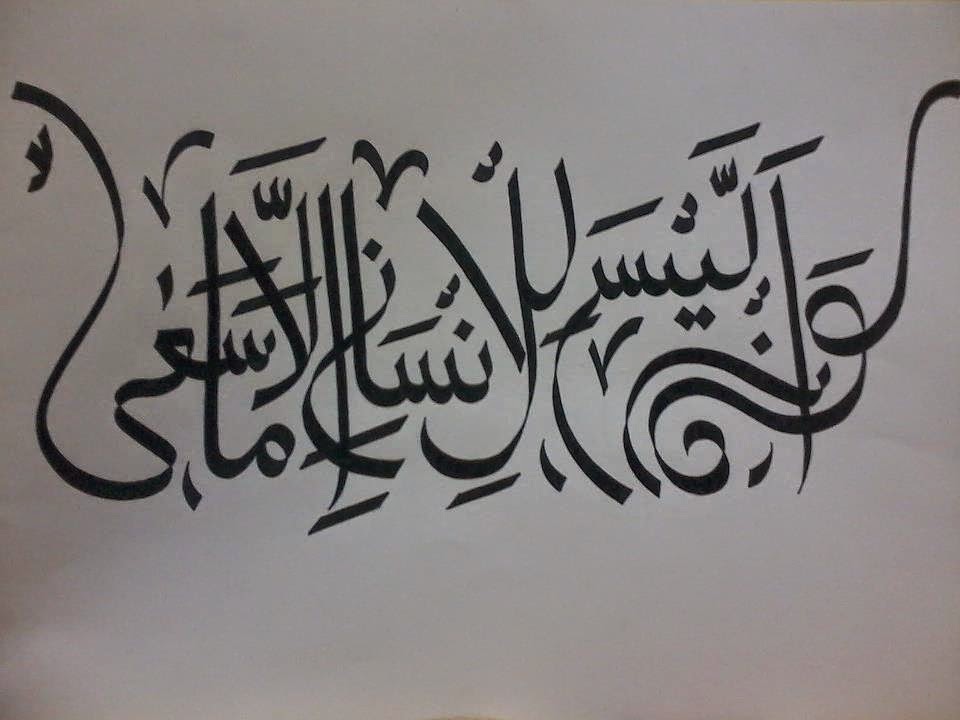 وَأَن لَّيْسَ لِلْإِنسَانِ إِلَّا مَا سَعَى